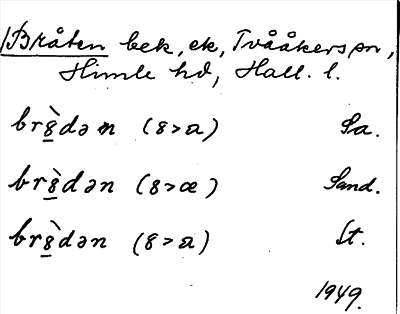 1/Bråten bek, ek, Tvååkers sn,
Himle hd, Hall. l.
br8̲̀dən (8>a) Sa.
br8̲̀dən (8>æ) Sand.
br8̲̀dən (8>a) St.
1949.